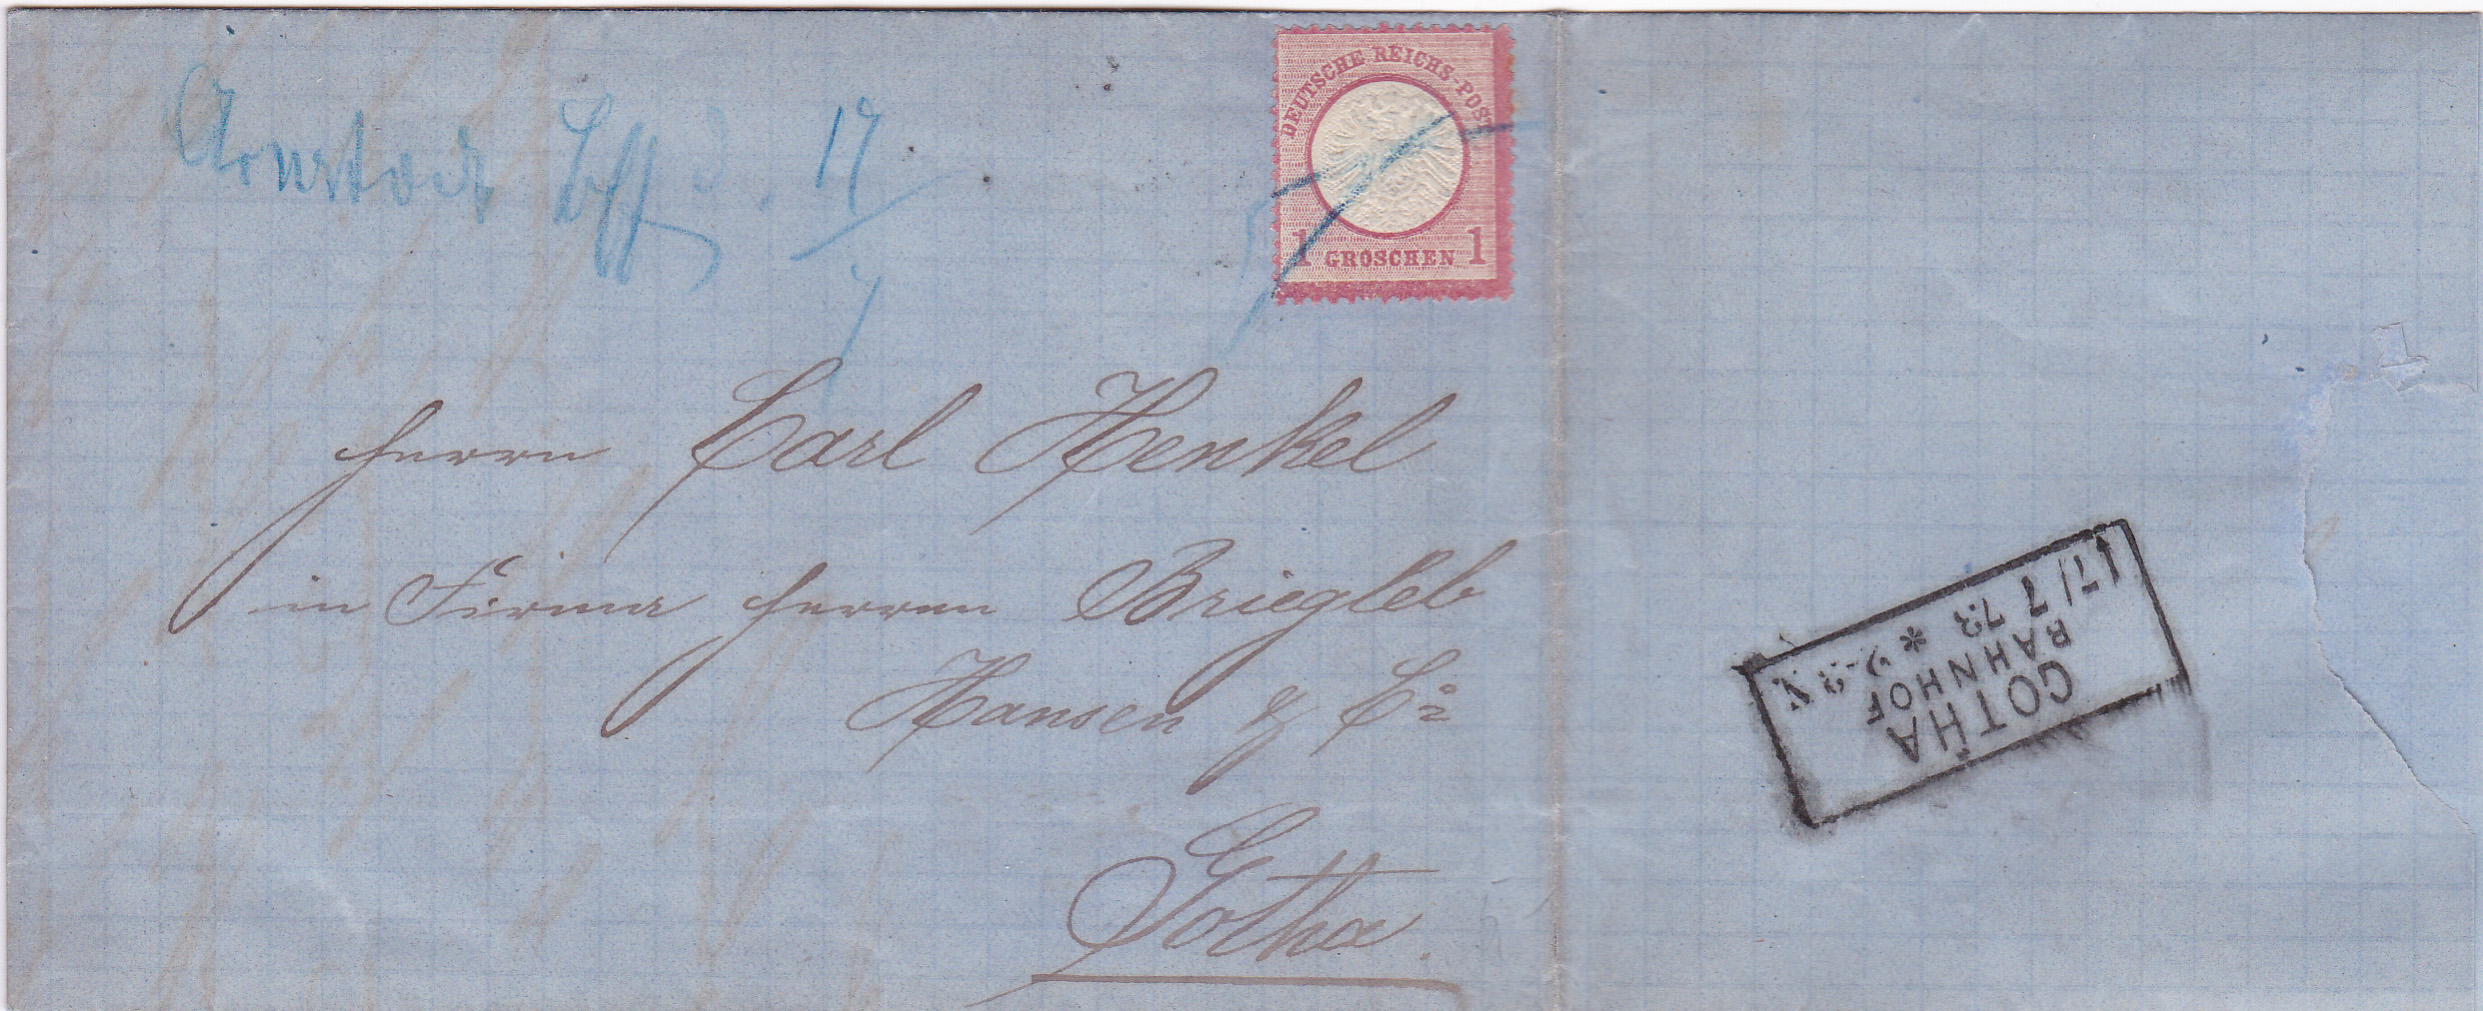 Arnstadt Bhf d. 17/7
DEUTSCHE REICHS-POST
1 GROSCHEN 1
Herrn Carl Henkel
in Firma Herren Briegleb
Hansen & Co
Gotha.
GOTHA
BAHNHOF
17/7 73 * 2-3 N.